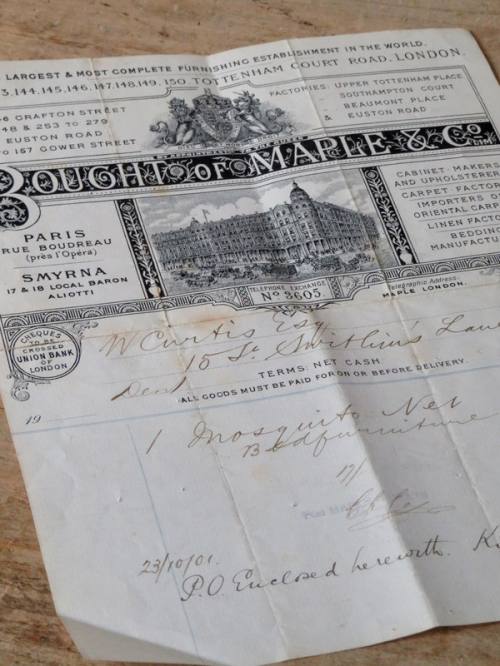 LARGEST & MOST COMPLETE FURNISHING ESTABLISHMENT IN THE WORLD.
3,144,145,146,147,148,149,150, TOTTENHAM COURT ROAD, LONDON.
GRAFTON STREET
48 & 253 TO 279
EUSTON ROAD
TO 157 GOWER STREET
FACTORIES: UPPER TOTTENHAM PLACE
SOUTHAMPTON COURT
BEAUMONT PLACE
& EUSTON ROAD
BY APPOINTMENT TO THE QUEEN
BOUGHT OF MAPLE & Co LTD
PARIS
RUE BOUDREAU
(près l'Opéra)
SMYRNA
17 & 18 LOCAL BARON
ALIOTTI
CABINET MAKERS
AND UPHOLSTERE
CARPET FACTO
IMPORTERS O
ORIENTAL CARP
LINEN FACTO
BEDDING
MANUFACT
TELEPHONE EXCHANGE
No 3605
Telegraphic Address
MAPLE LONDON.
CHEQUES
TO BE
CROSSED
UNION BANK
OF
LONDON
W Curtis Esq
15 St Swithin's Lane
TERMS, NET CASH.
ALL GOODS MUST BE PAID FOR ON OR BEFORE DELIVERY.
19
1 Mosquito Net
Bedfurniture
23/10/01.
P.O. Enclosed herewith.